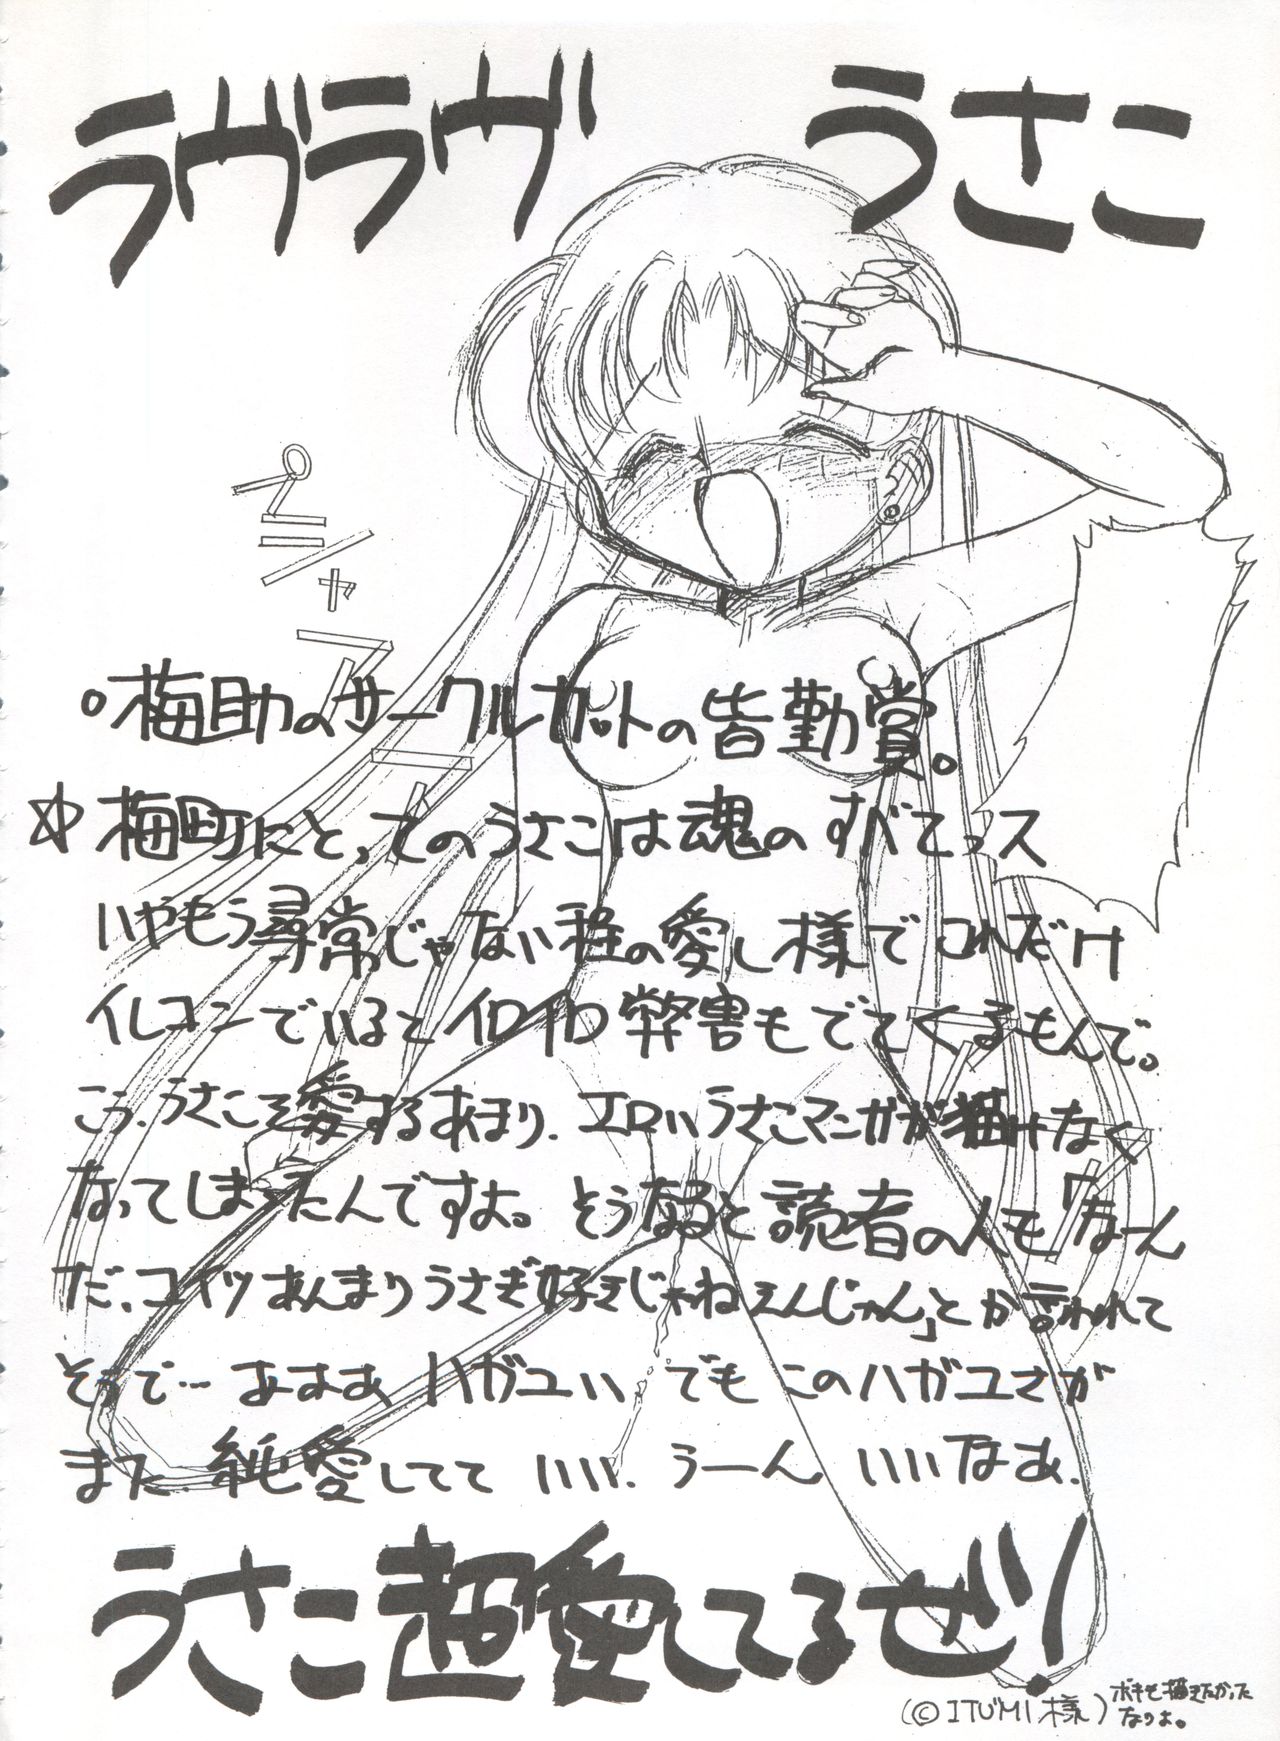 ラヴラヴ うさこ
プシャアーーッ
○梅助のサークルカットの皆勤賞。
☆梅町にとってのうさこは魂のすべてっス
いやもう尋常じゃない程の愛し様でこれだけ
イレコンでいるとイロイロ弊害もでてくるもんで。
こう、うさこを愛するあまり、エロいうさこマンガが描けなく
なってしまったんですよ。そうなると読者の人も「なーん
だ、コイツあんまりうさぎ好きじゃねえんじゃん」とか言われて
そっで…ああああ ハガユい でもこのハガユさが
また 純愛してて いい。うーん いいなあ。
うさこ超愛してるぜ!
(©ITUMI様)
ボキも描きたかった
なりよ。